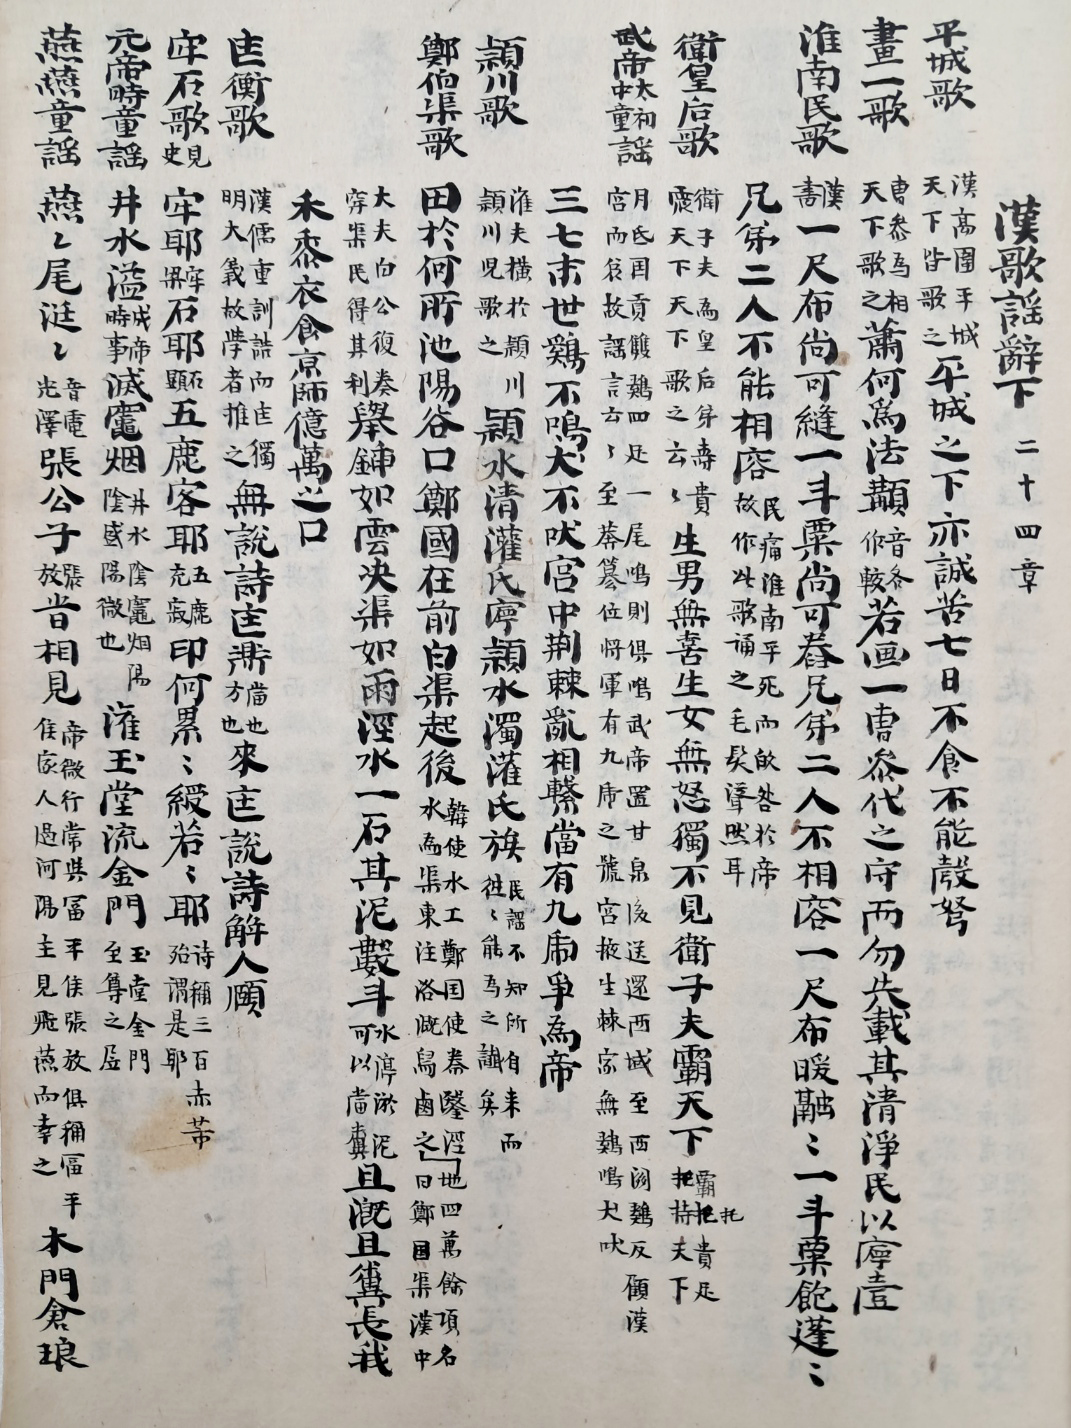 漢歌謡辭下 二十四章
平城歌 漢高圍平城天下皆歌之 平城之下亦誠苦七日不食不能彀弩
畫一歌 曹參為相天下歌之 蕭何為法顜 音各作較 若画一曹參代之守而勿失載其清淨民以寧壹
淮南民歌 漢書 一尺布尚可縫一斗粟尚可舂兄弟二人不相容一尺布暖融〻一斗粟飽蓬〻
兄弟二人不能相容 民痛淮南平死而㰸咎於帝故作此歌誦之毛髮聳然耳
衛皇后歌 衛子夫為皇后弟壽貴震天下天下歌之云〻 生男無喜生女無怒獨不見衛子夫霸天下 霸把貴足把持天下 托
武帝太初中童謡 月氏国貢雙鷄四足一尾鳴則俱鳴武帝置甘泉後送還西域至西関鷄反顧漢宮而哀故謡言云〻至莽篡位将軍有九虎之號宮掖生棘家無鷄鳴犬吠
三七末世鷄不鳴犬不吠宮中荆棘亂相繫當有九虎爭為帝
潁川歌 淮夫横於潁川潁川児歌之 潁水清灌氏寧潁水濁灌氏族 民謡不知所自来而徃〻能為之讖矣
鄭伯渠歌 田於何所池陽谷口鄭國在前白渠起後 韓使水工鄭国使秦鑿涇水為渠東注洛漑舄鹵之地四萬餘項名曰鄭国渠漢中
大夫白公復奏穿渠民得其利 舉鍤如雲决渠如雨涇水一石其泥數斗 水停淤泥可以當糞 且漑且糞長我
禾黍衣食京師億萬之口
匡衡歌 漢儒重訓詁而匡獨明大義故學者推之 無說詩匡鼎 當也方也 來匡說詩解人頤
牢石歌 見史 牢耶 牢梁 石耶 石顯 五鹿客耶 五鹿充宗 印何累〻綬若〻耶 詩稱三百赤芾殆謂是耶
元帝時童謡 井水溢 成帝時事 滅竈烟 井水陰竈烟陽陰盛陽微也 潅玉堂流金門 玉堂金門至尊之居
燕燕童謡 燕〻尾涎〻 音電光澤 張公子 張放 昔相見 帝微行常與冨平侯張放俱稱冨平侯家人過河陽主見飛燕而幸之 木門倉琅